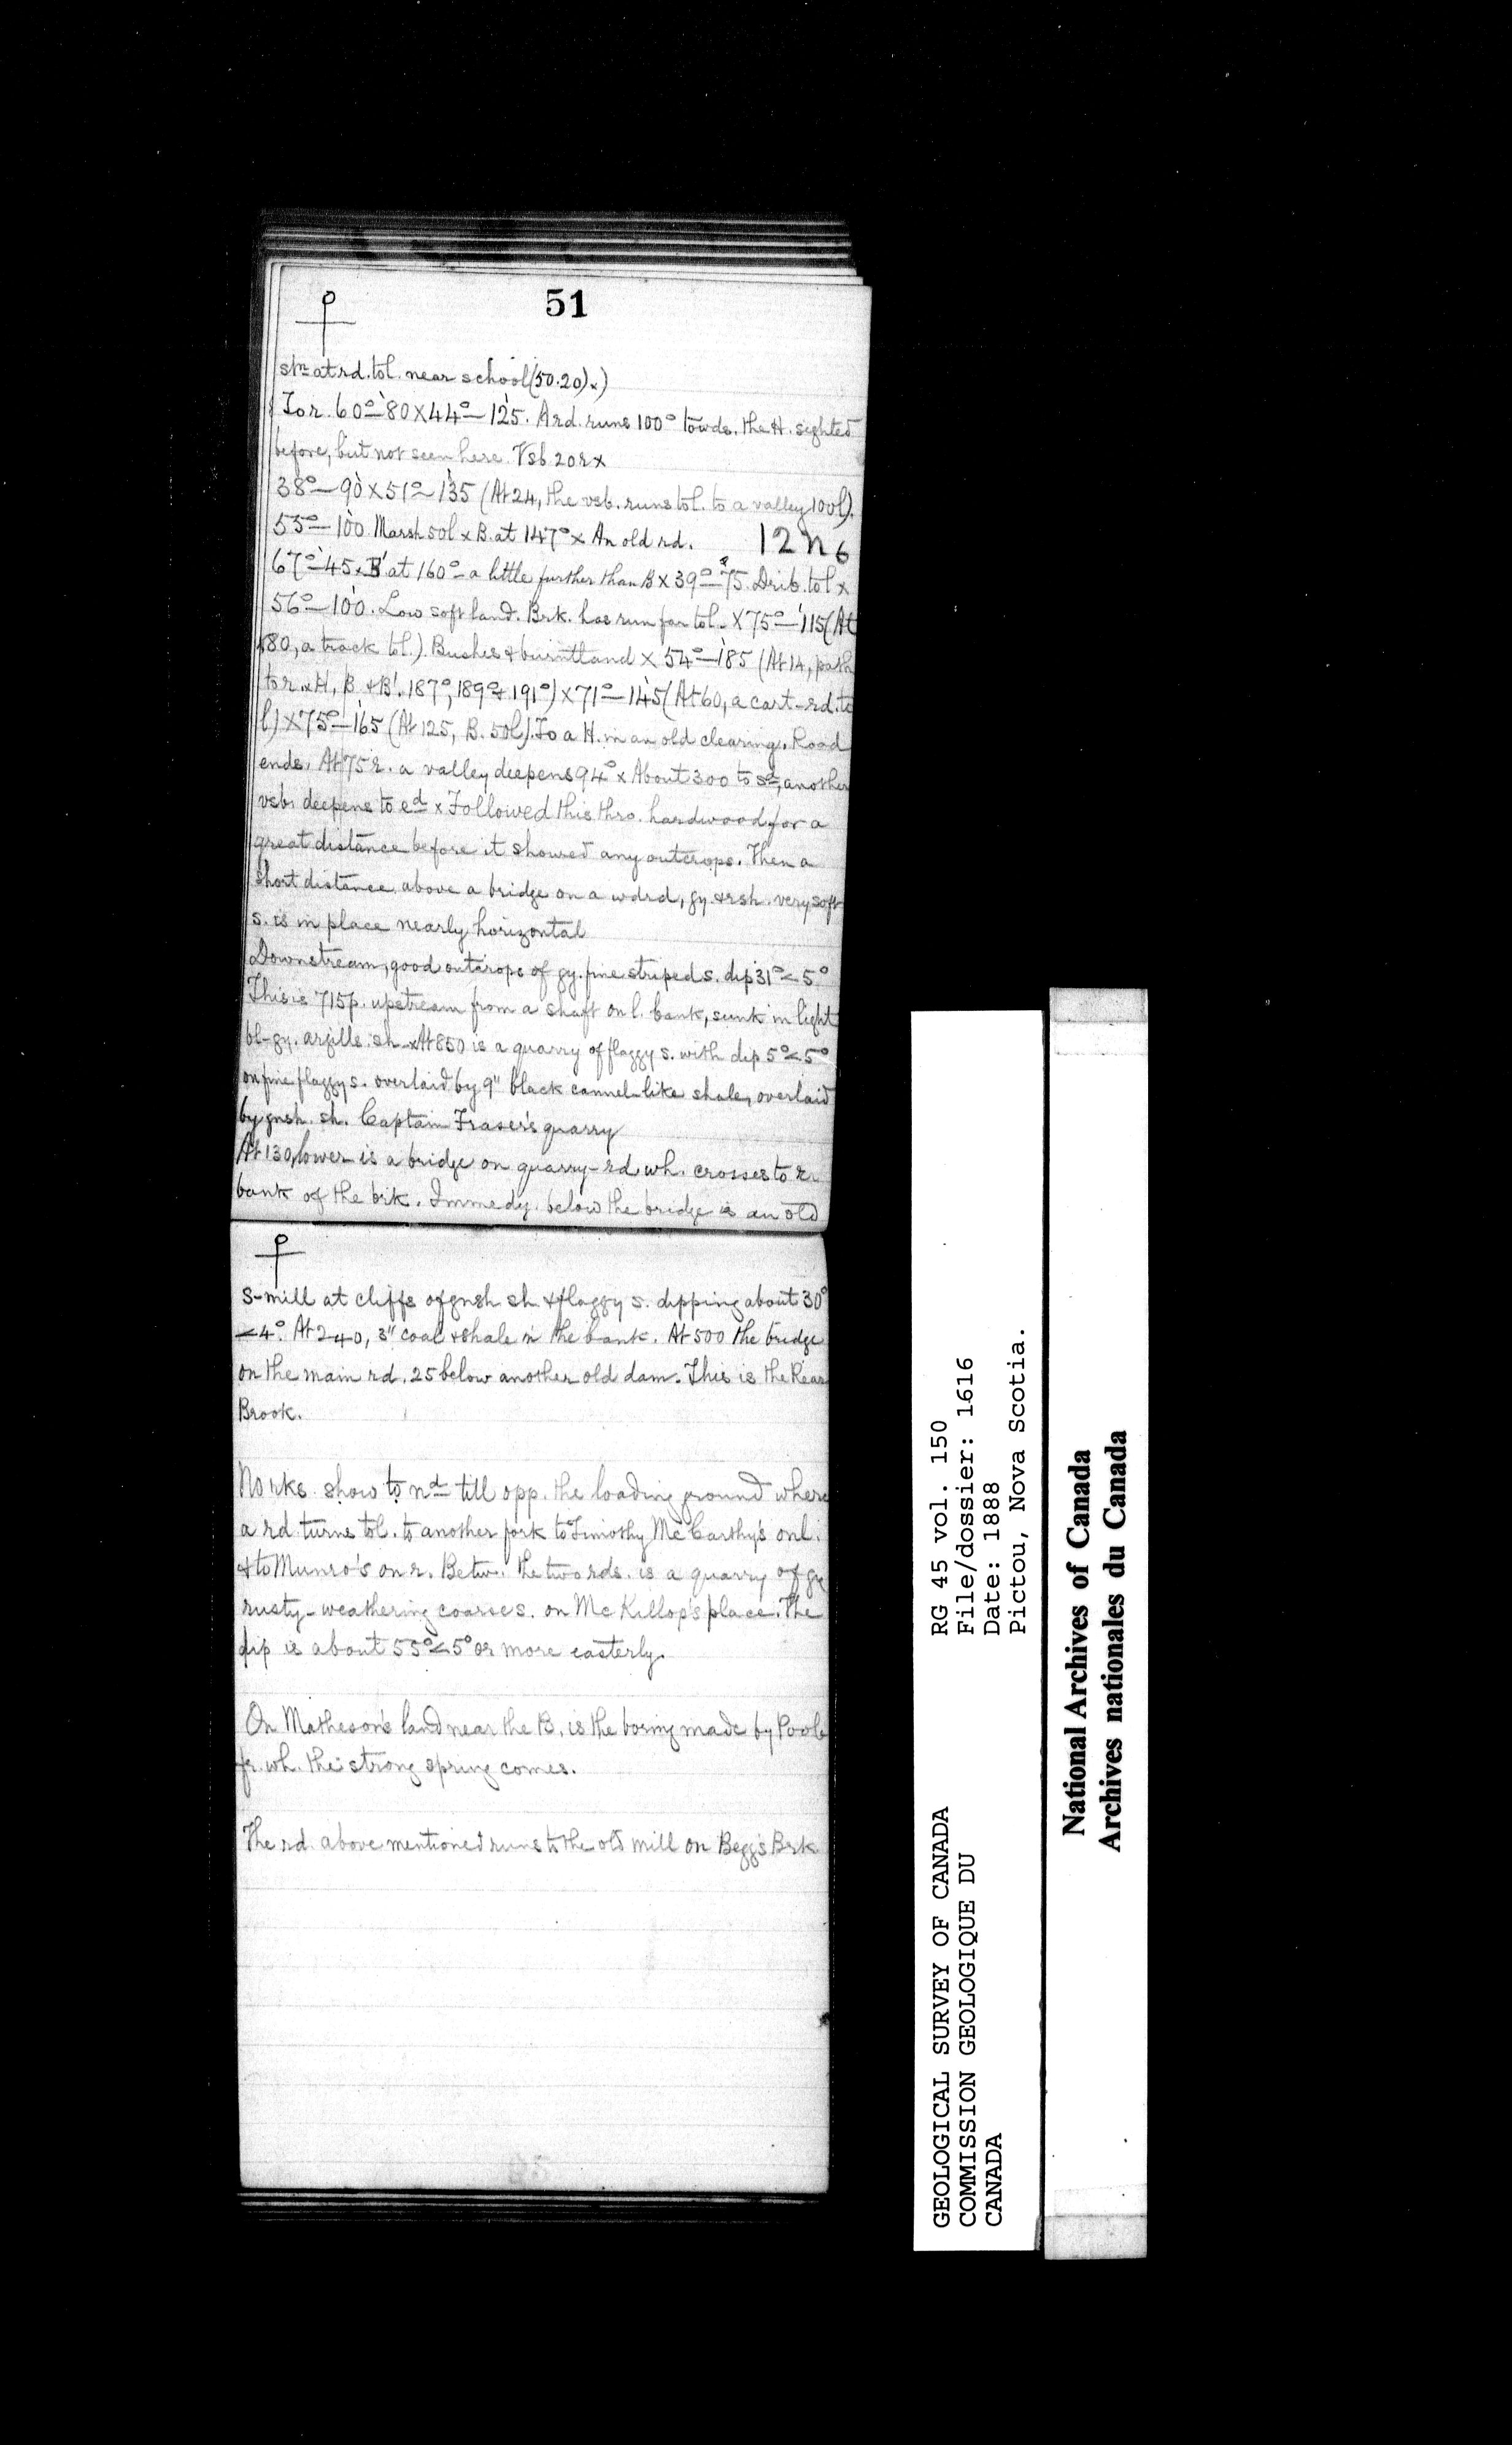 51
stn at rd. to l. near school (50.20).)
To r. 60°–80 X 44°–125. A rd. runs 100° towds. the H. sighted
before, but not seen here. Vsb 20 r x
38°–90 X 51°–135 (At 24, the vsb. runs to l. to a valley 100 l).
55°–100. Marsh 50 l x B. at 147° x An old rd.
12 n 6
67°–45. B' at 160°– a little further than B X 39°–75. Drib. to l x
56°–100. Low soft land. Brk. has run far to l. X 75°–115 (At
80, a track to l.). Bushes & burnt land X 54°–185 (At 14, path
to r. x H, B & B'. 187°, 189° & 191°) X 71°–145 (At 60, a cart-rd. to
l) X 75°–165 (At 125, B. 50 l). To a H. in an old clearing. Road
ends. At 75 r. a valley deepens 94° x About 300 to sd, another
vsb. deepens to ed x Followed this thro. hardwood for a
great distance before it showed any outcrops. Then a
short distance above a bridge on a wdrd, gy. & rsh. very soft
s. is in place nearly horizontal
Downstream, good outcrops of gy. fine striped s. dip 31° < 5°
This is 715 p. upstream from a shaft on l. bank, sunk in light
bl-gy. argills. sh. x At 850 is a quarry of flaggy s. with dip 5° < 5°
on fine flaggy s. overlaid by 9" black cannel-like shale, overlaid
by gnsh. sh. Captain Fraser's quarry
At 130, lower is a bridge on quarry-rd. wh. crosses to r.
bank of the brk. Immedy. below the bridge is an old
s-mill at cliffs of gnsh sh. & flaggy s. dipping about 30°
< 4°. At 240, 3" coal & shale in the bank. At 500 the bridge
on the main rd. 25 below another old dam. This is the Rear
Brook.
No rks. show to nd till opp. the loading ground where
a rd turns to l. to another fork to Timothy McCarthy's on l.
& to Munro's on r. Betw. the two rds. is a quarry of gy
rusty-weathering coarse s. on McKillop's place. The
dip is about 55° < 5° or more easterly.
On Matheson's land near the B. is the boring made by Poole
fr. wh. the strong spring comes.
The rd. above mentioned runs to the old mill on Begg's Brk
GEOLOGICAL SURVEY OF CANADA
COMMISSION GEOLOGIQUE DU
CANADA
RG 45 vol. 150
File/dossier: 1616
Date: 1888
Pictou, Nova Scotia.
National Archives of Canada
Archives nationales du Canada